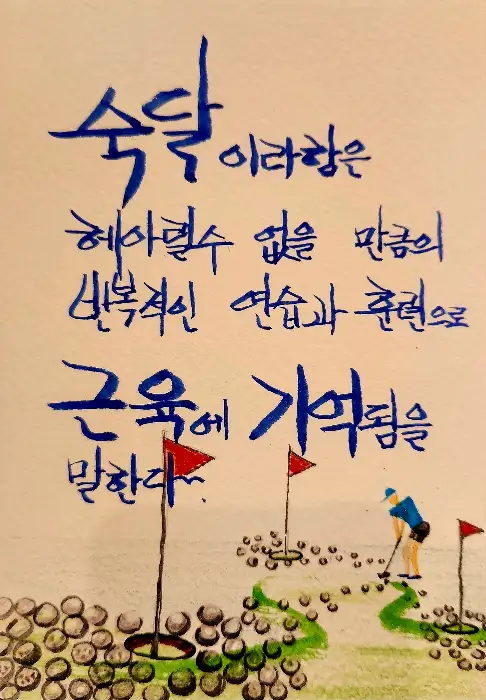 숙달이라함은
헤아릴수 없을 만큼의
반복적인 연습과 훈련으로
근육에 기억됨을
말한다~.